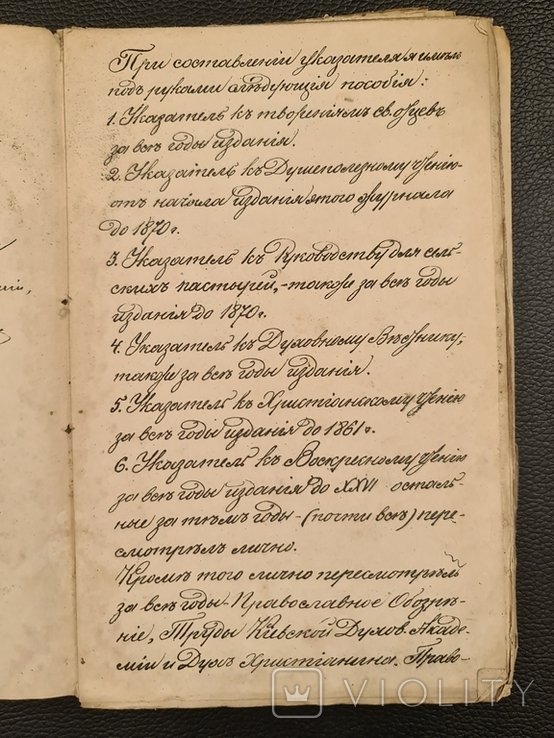 При составленіи указателя я имѣлъ
подъ руками слѣдующія пособія:
1. Указатель къ твореніямъ св. отцевъ
за всѣ годы изданія.
2. Указатель къ Душеполезному чтенію-
отъ начала изданія этого журнала
до 1870 г.
3. Указатель къ Руководству для сель-
скихъ пастырей,-также за всѣ годы
изданія до 1870 г.
4. Указатель къ Духовному Вѣстнику,
также за всѣ годы изданія.
5. Указатель къ Христіанскому чтенію
за всѣ годы изданія до 1861 г.
6. Указатель къ Воскресному чтенію
за всѣ годы изданія до XXVI осталь-
ные за тѣмъ годы-(почти всѣ) пере-
смотрѣлъ лично.
Кромѣ того лично пересмотрѣлъ
за всѣ годы Православное Обозрѣ-
ніе, Труды Кіевской Духов. Акаде-
міи и Духъ Христіанина. Право-
VIOLITY